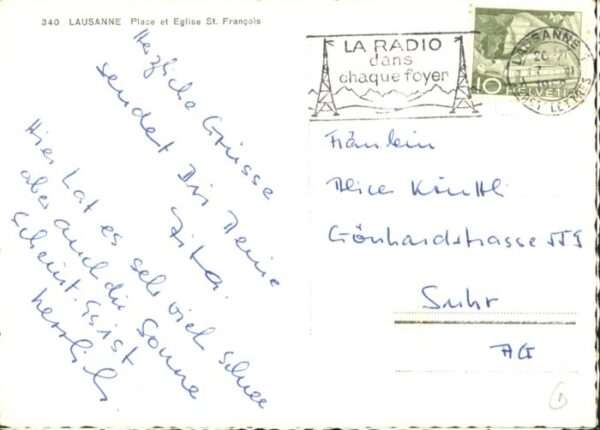 340 LAUSANNE Place et Eglise St. François
Herzliche Grüsse
sendet Dir Deine
Zita.
Hier hat es sehr viel schnee
aber auch die Sonne
scheint. Es ist
herrlich.
LA RADIO
dans
chaque foyer
LAUSANNE 1
10
HELVETIA
Fräulein
Alice
Gönhardstrasse
Suhr
AG